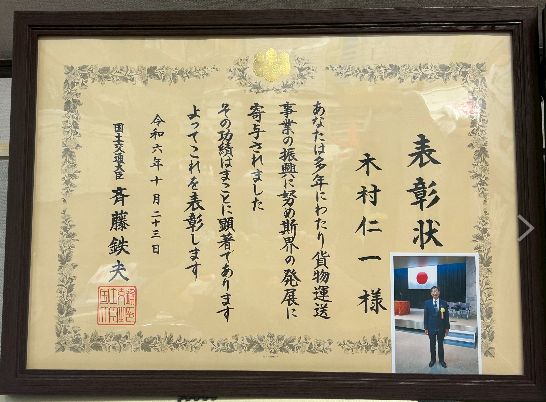 表彰状
木村仁一様
あなたは多年にわたり貨物運送
事業の振興に努め斯界の発展に
寄与されました
その功績はまことに顕著であります
よってこれを表彰します
令和六年十月二十三日
国土交通大臣 斉藤鉄夫